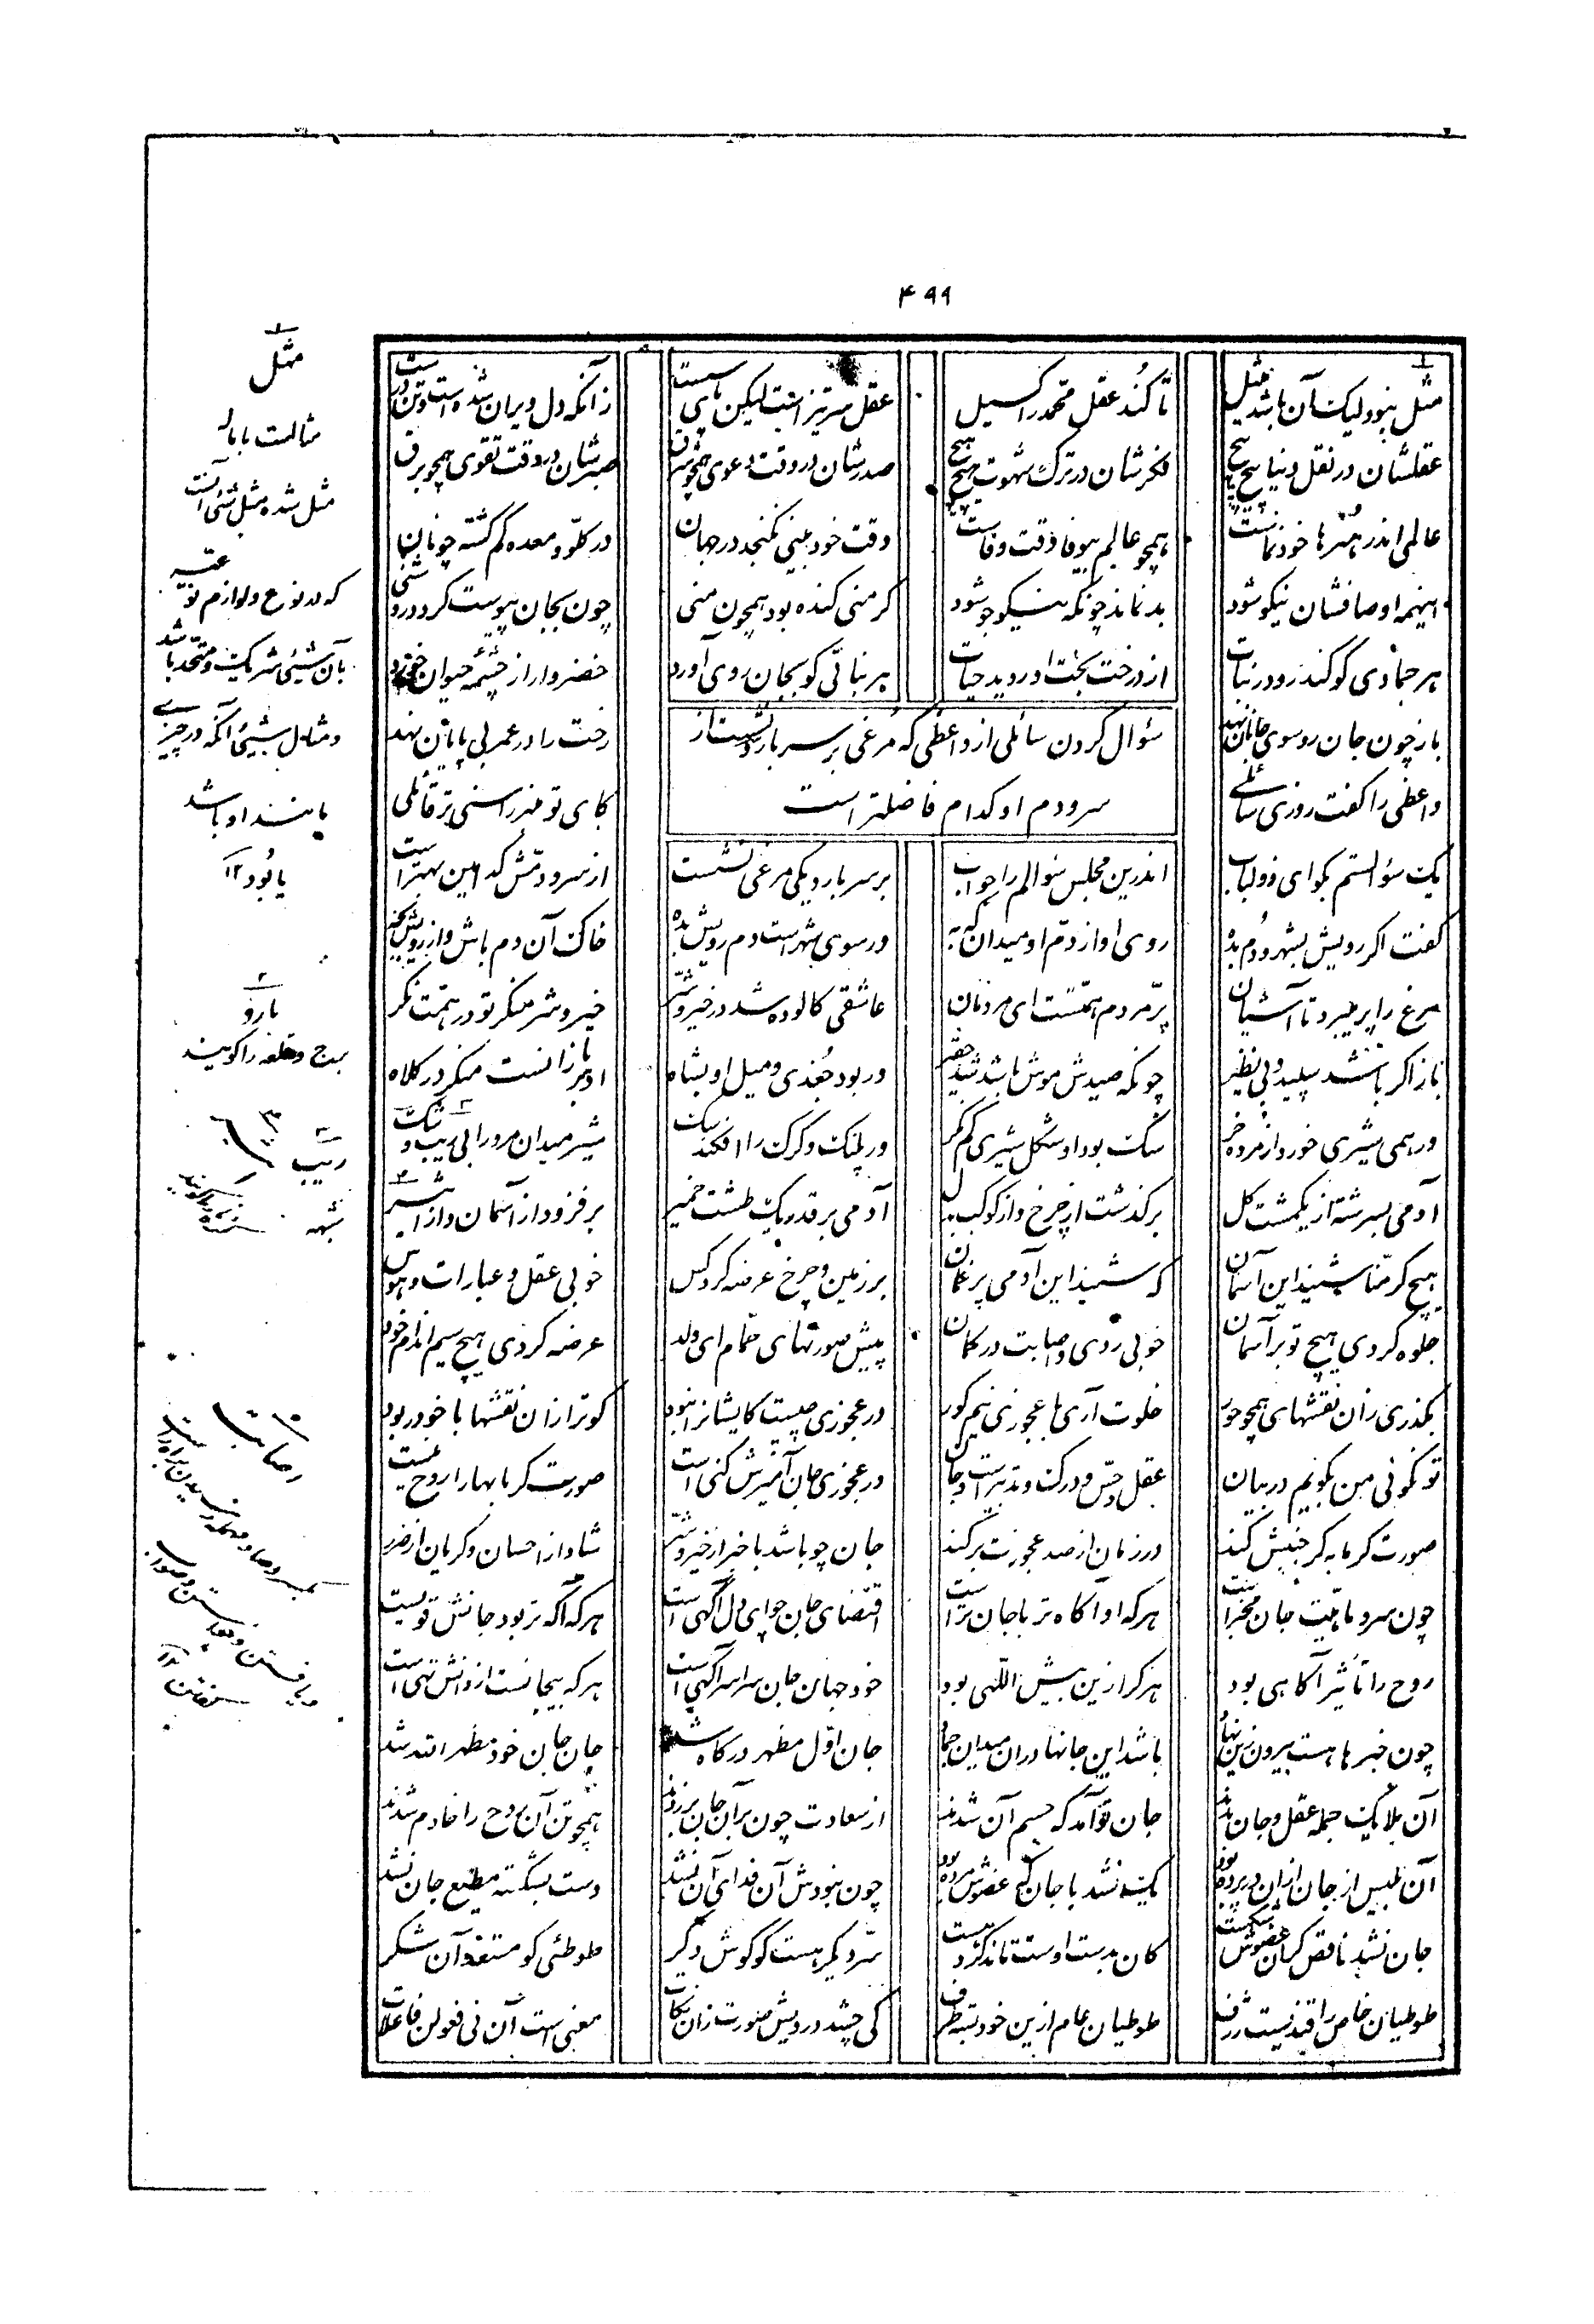 ۴۹۹
مثل نبود لیک آن باشد مثیل تا کند عقل محمد را کسیل عقل سرتیز است لیکن پای سست زآنکه دل ویران شده است و تن درست
عقلشان در نقل دنیا پیچ پیچ فکرشان در ترک شهوت هیچ هیچ صدرشان در وقت دعوی همچو شرق صبرشان در وقت تقوی همچو برق
عالمی اندر هنرها خودنماست همچو عالم بیوفا وقت وفاست وقت خودبینی نکنجد در جهان در کلو و معده کم کشته چو نان
اینهمه اوصافشان نیکو شود بد نماند چونکه نیکو جو شود کر منی کنده بود همچون منی چون بجان پیوست کردد روشنی
هر جمادی کو کند رو در نبات از درخت بخت او روید حیات هر نباتی کو بجان روی آورد خضروار از چشمه حیوان خورد
باز چون جان رو سوی جانان نهد رخت را در عمر بی پایان نهد
سؤال کردن سائلی از واعظی که مرغی بر سر بارو نشست از
سر و دم او کدام فاضلتر است
واعظی را کفت روزی سائلی کای تو منبر را سنی تر قائلی
یک سؤالستم بکو ای ذو لباب اندرین مجلس سؤالم را جواب بر سر بارو یکی مرغی نشست از سر و دمش کدامین بهتر است
کفت اکر رویش بشهر و دم بده روی او از دم او میدان که به ور سوی شهر است دم رویش بده خاک آن دم باش و از رویش بجه
مرغ را پر میبرد تا آشیان پر مردم همتست ای مردمان عاشقی کالوده شد در خیر و شر خیر و شر منکر تو در همت نکر
باز اکر باشد سپید و بی نظیر چونکه صیدش موش باشد شد حقیر ور بود جغدی و میل او بشاه او سر باز است منکر در کلاه
ور همی شیری خورد از مرده خر سک بود او شکل شیری کم نکر ور پلنک و کرک را افکند سک شیر میدان مر ورا بی ریب و شک
آدمی بسرشته از یکمشت کل برکذشت از چرخ و از کوکب بدل آدمی بر قدر یک طشت خمیر بر فزود از آسمان و از اثیر
هیچ کرمنا شنید این آسمان که شنید این آدمی پر غمان بر زمین و چرخ عرضه کرد کس خوبی عقل و عبارات و هوس
جلوه کردی هیچ تو بر آسمان خوبی روی و اصابت در کمان پیش صورتهای حمام ای ولد عرضه کردی هیچ سیم اندام خود
بکذری زان نقشهای همچو حور خلوت آری با عجوزی نیم کور در عجوزی چیست کایشانرا نبود کو ترا زان نقشها با خود ربود
تو نکوئی من بکویم در بیان عقل و حس و درک و تدبیر است و جان در عجوزی جان آمیزش کنی است صورت کرمابها را روح نیست
صورت کرمابه کر جنبش کند در زمان از صد عجوزت بر کند جان چو باشد با خبر از خیر و شر شاد از احسان و کریان از ضرر
چون سر و ماهیت جان مخبر است هر که او آکاه تر با جان تر است اقتضای جان چو ای دل آکهی است هر که آکه تر بود جانش قویست
روح را تأثیر آکاهی بود هر کرا این بیش اللهی بود خود جهان جان سراسر آکهی است هر که بیجانست از دانش تهی است
چون خبرها هست بیرون زین نهاد باشد این جانها دران میدان جماد جان اول مظهر درکاه شد جان جان خود مظهر الله شد
آن ملایک جمله عقل و جان بدند جان نو آمد که جسم آن شدند از سعادت چون بر آن جان بر زدند همچو تن آن روح را خادم شدند
آن بلیس از جان ازان سر برده بود یک نشد با جان که عضو مرده بود چون نبودش آن فدای آن نشد دست بشکسته مطیع جان نشد
جان نشد ناقص کر آن عضوش شکست کان بدست اوست تاند کرد هست سر دیکر هست کو کوش دکر طوطئی کو مستعد آن شکر
طوطیان خاص را قندیست ژرف طوطیان عام ازین خود بسته طرف کی چشد درویش صورت زان نکات معنی است آن نی فعولن فاعلات
مثل
که در نوع و لوازم
بآن شیئی شریک و متحد باشد
و مثال شیئی آنکه در چیزی
مانند او باشد
یا بود ۱۲
بارو
برج و قلعه را کویند
ریب
شبهه